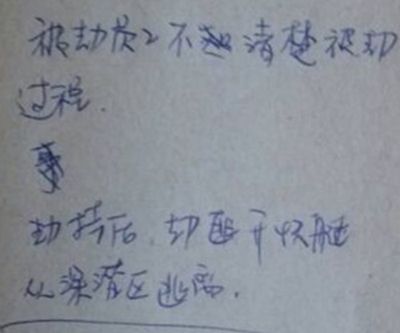 被劫质2不清楚被劫
过程.
劫持后.劫匪开快艇
从深湾区逃离.